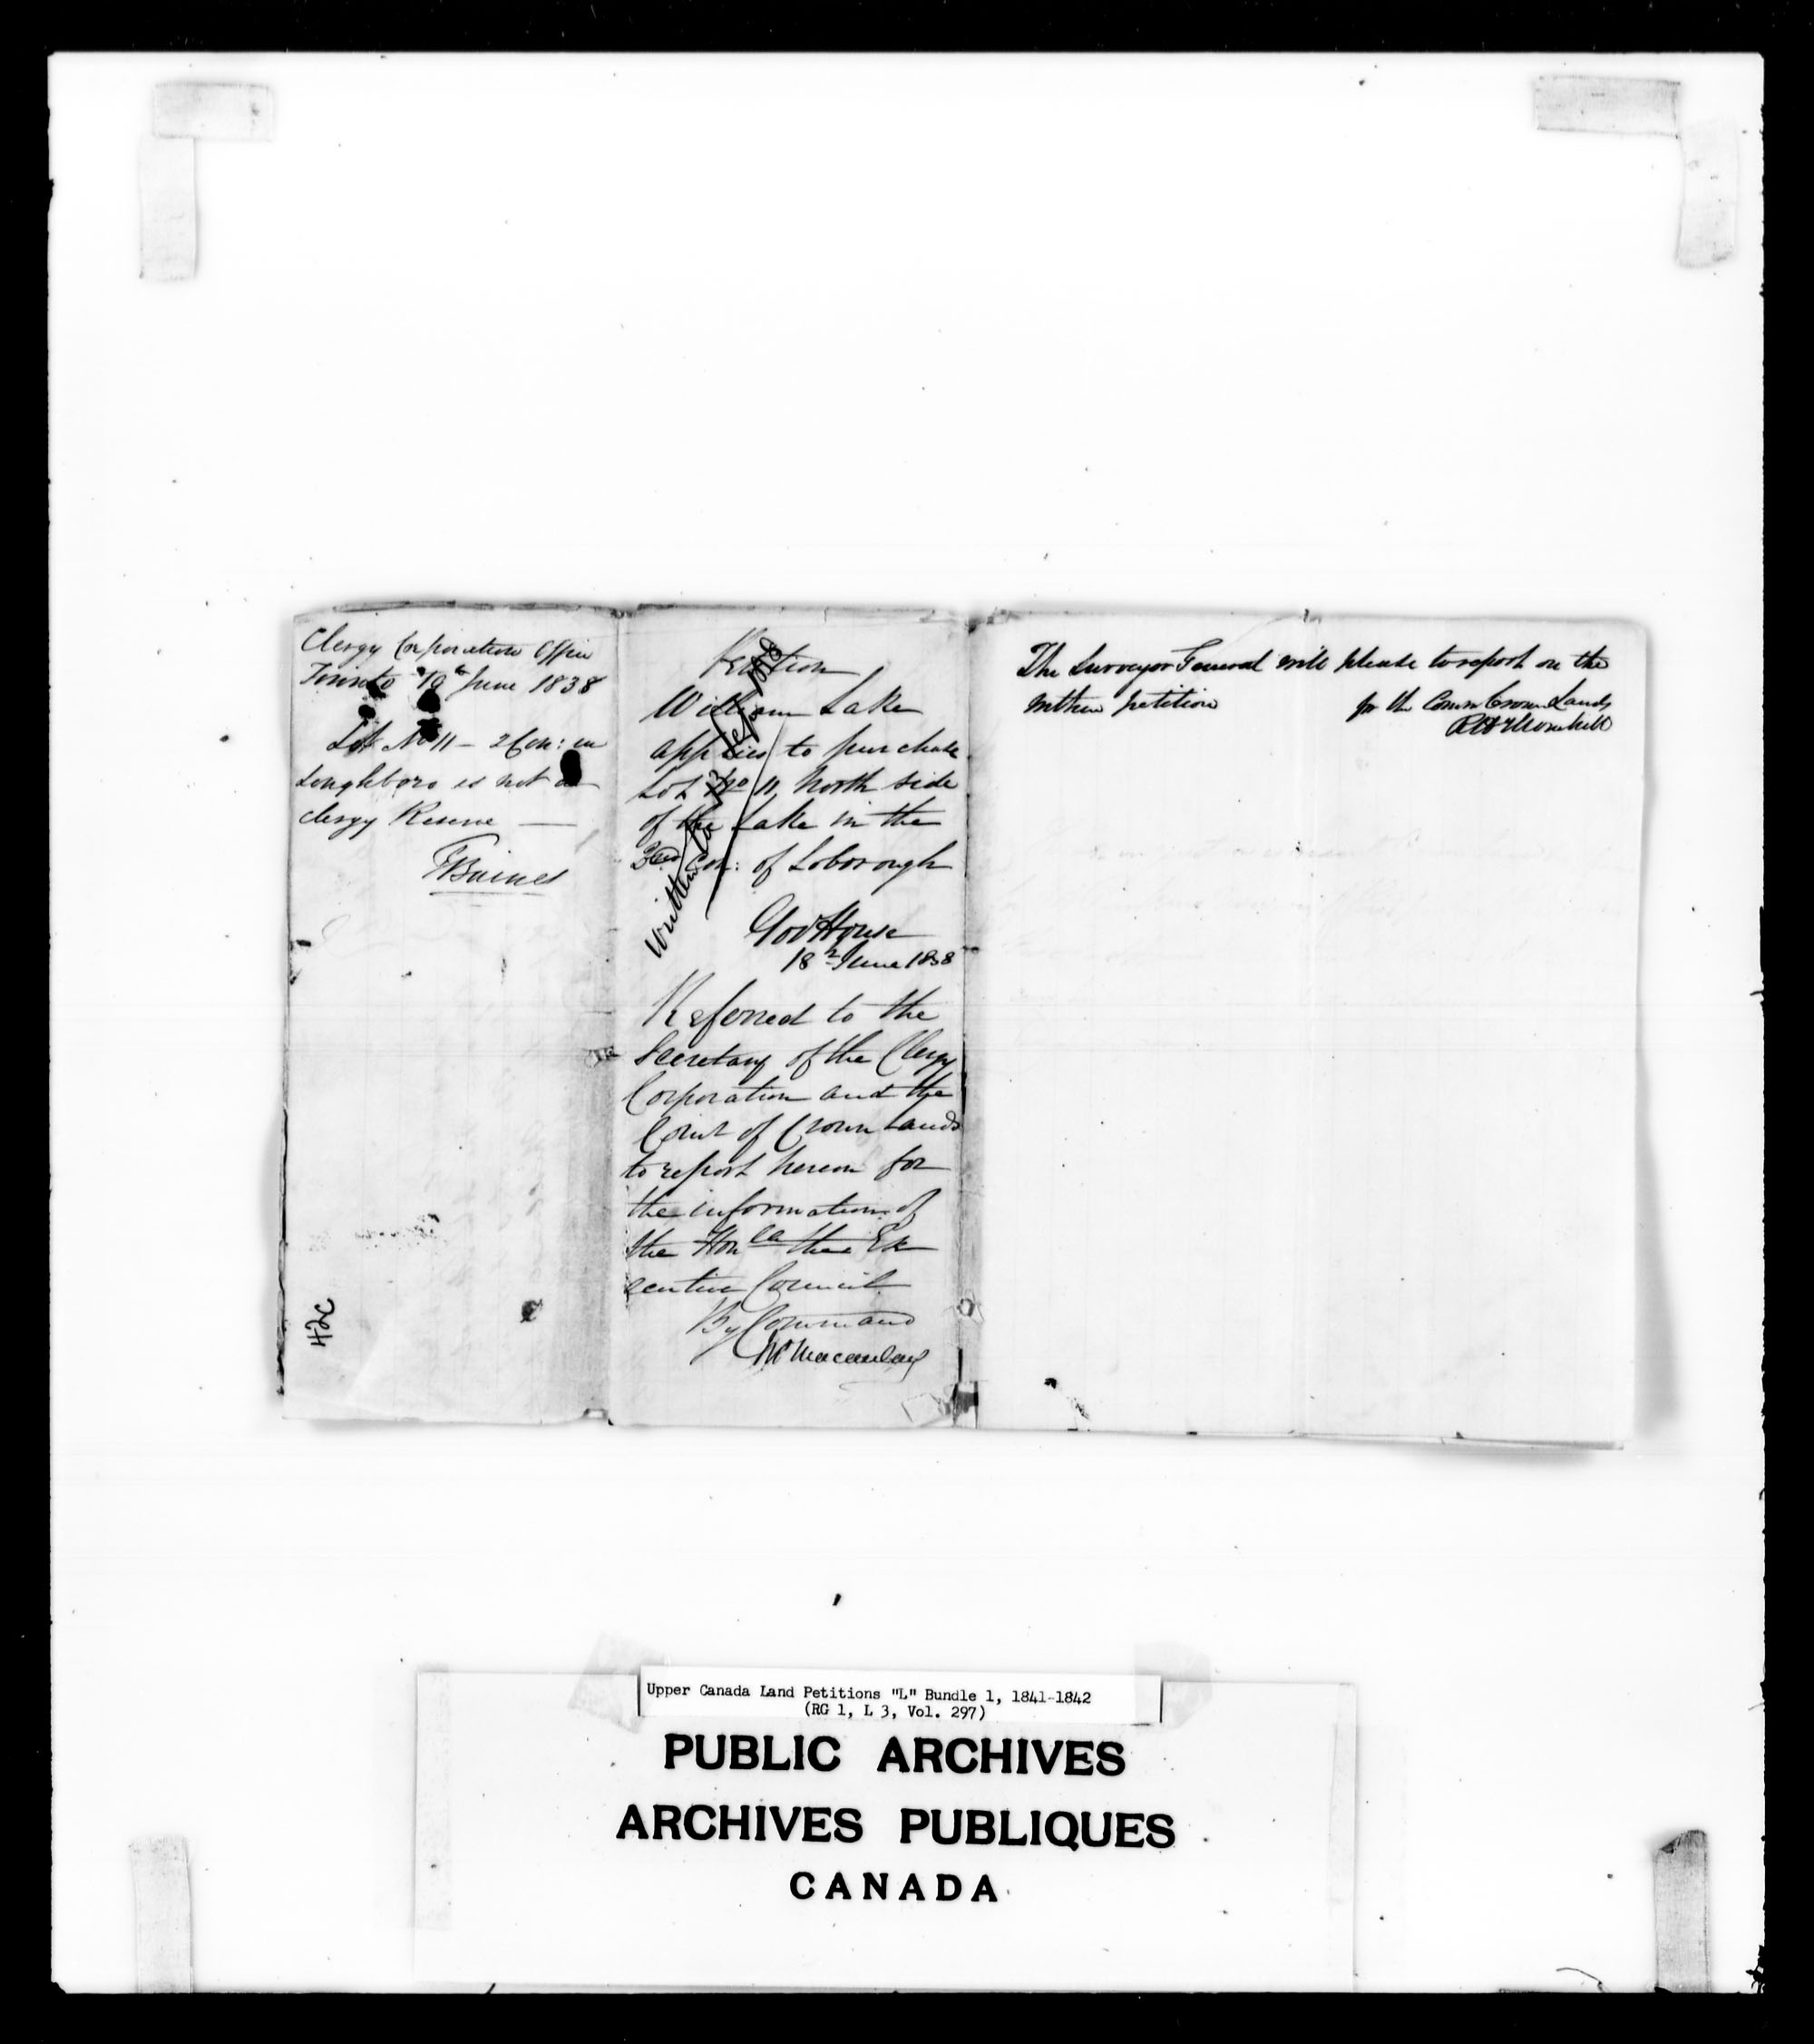 Clergy Corporation Office
Toronto 19th June 1838
Lot No 11 - 2 Con: in
Loughboro is not a
Clergy Reserve
TBaines
42c
Petition
William Lake
applies to purchase
Lot No 11, North side
of the Lake in the
Con: of Loborough
Written to
Gov House
18 June 1838
Referred to the
Secretary of the Clergy
Corporation and the
Comr of Crown Lands
to report hereon for
the information of
the Honble the Ex
ecutive Council
By Command
Macaulay
The Surveyor General will please to report on the
within petition
for the Commr Crown Lands
RHThornhill
Upper Canada Land Petitions "L" Bundle 1, 1841-1842
(RG 1, L 3, Vol. 297)
PUBLIC ARCHIVES
ARCHIVES PUBLIQUES
CANADA